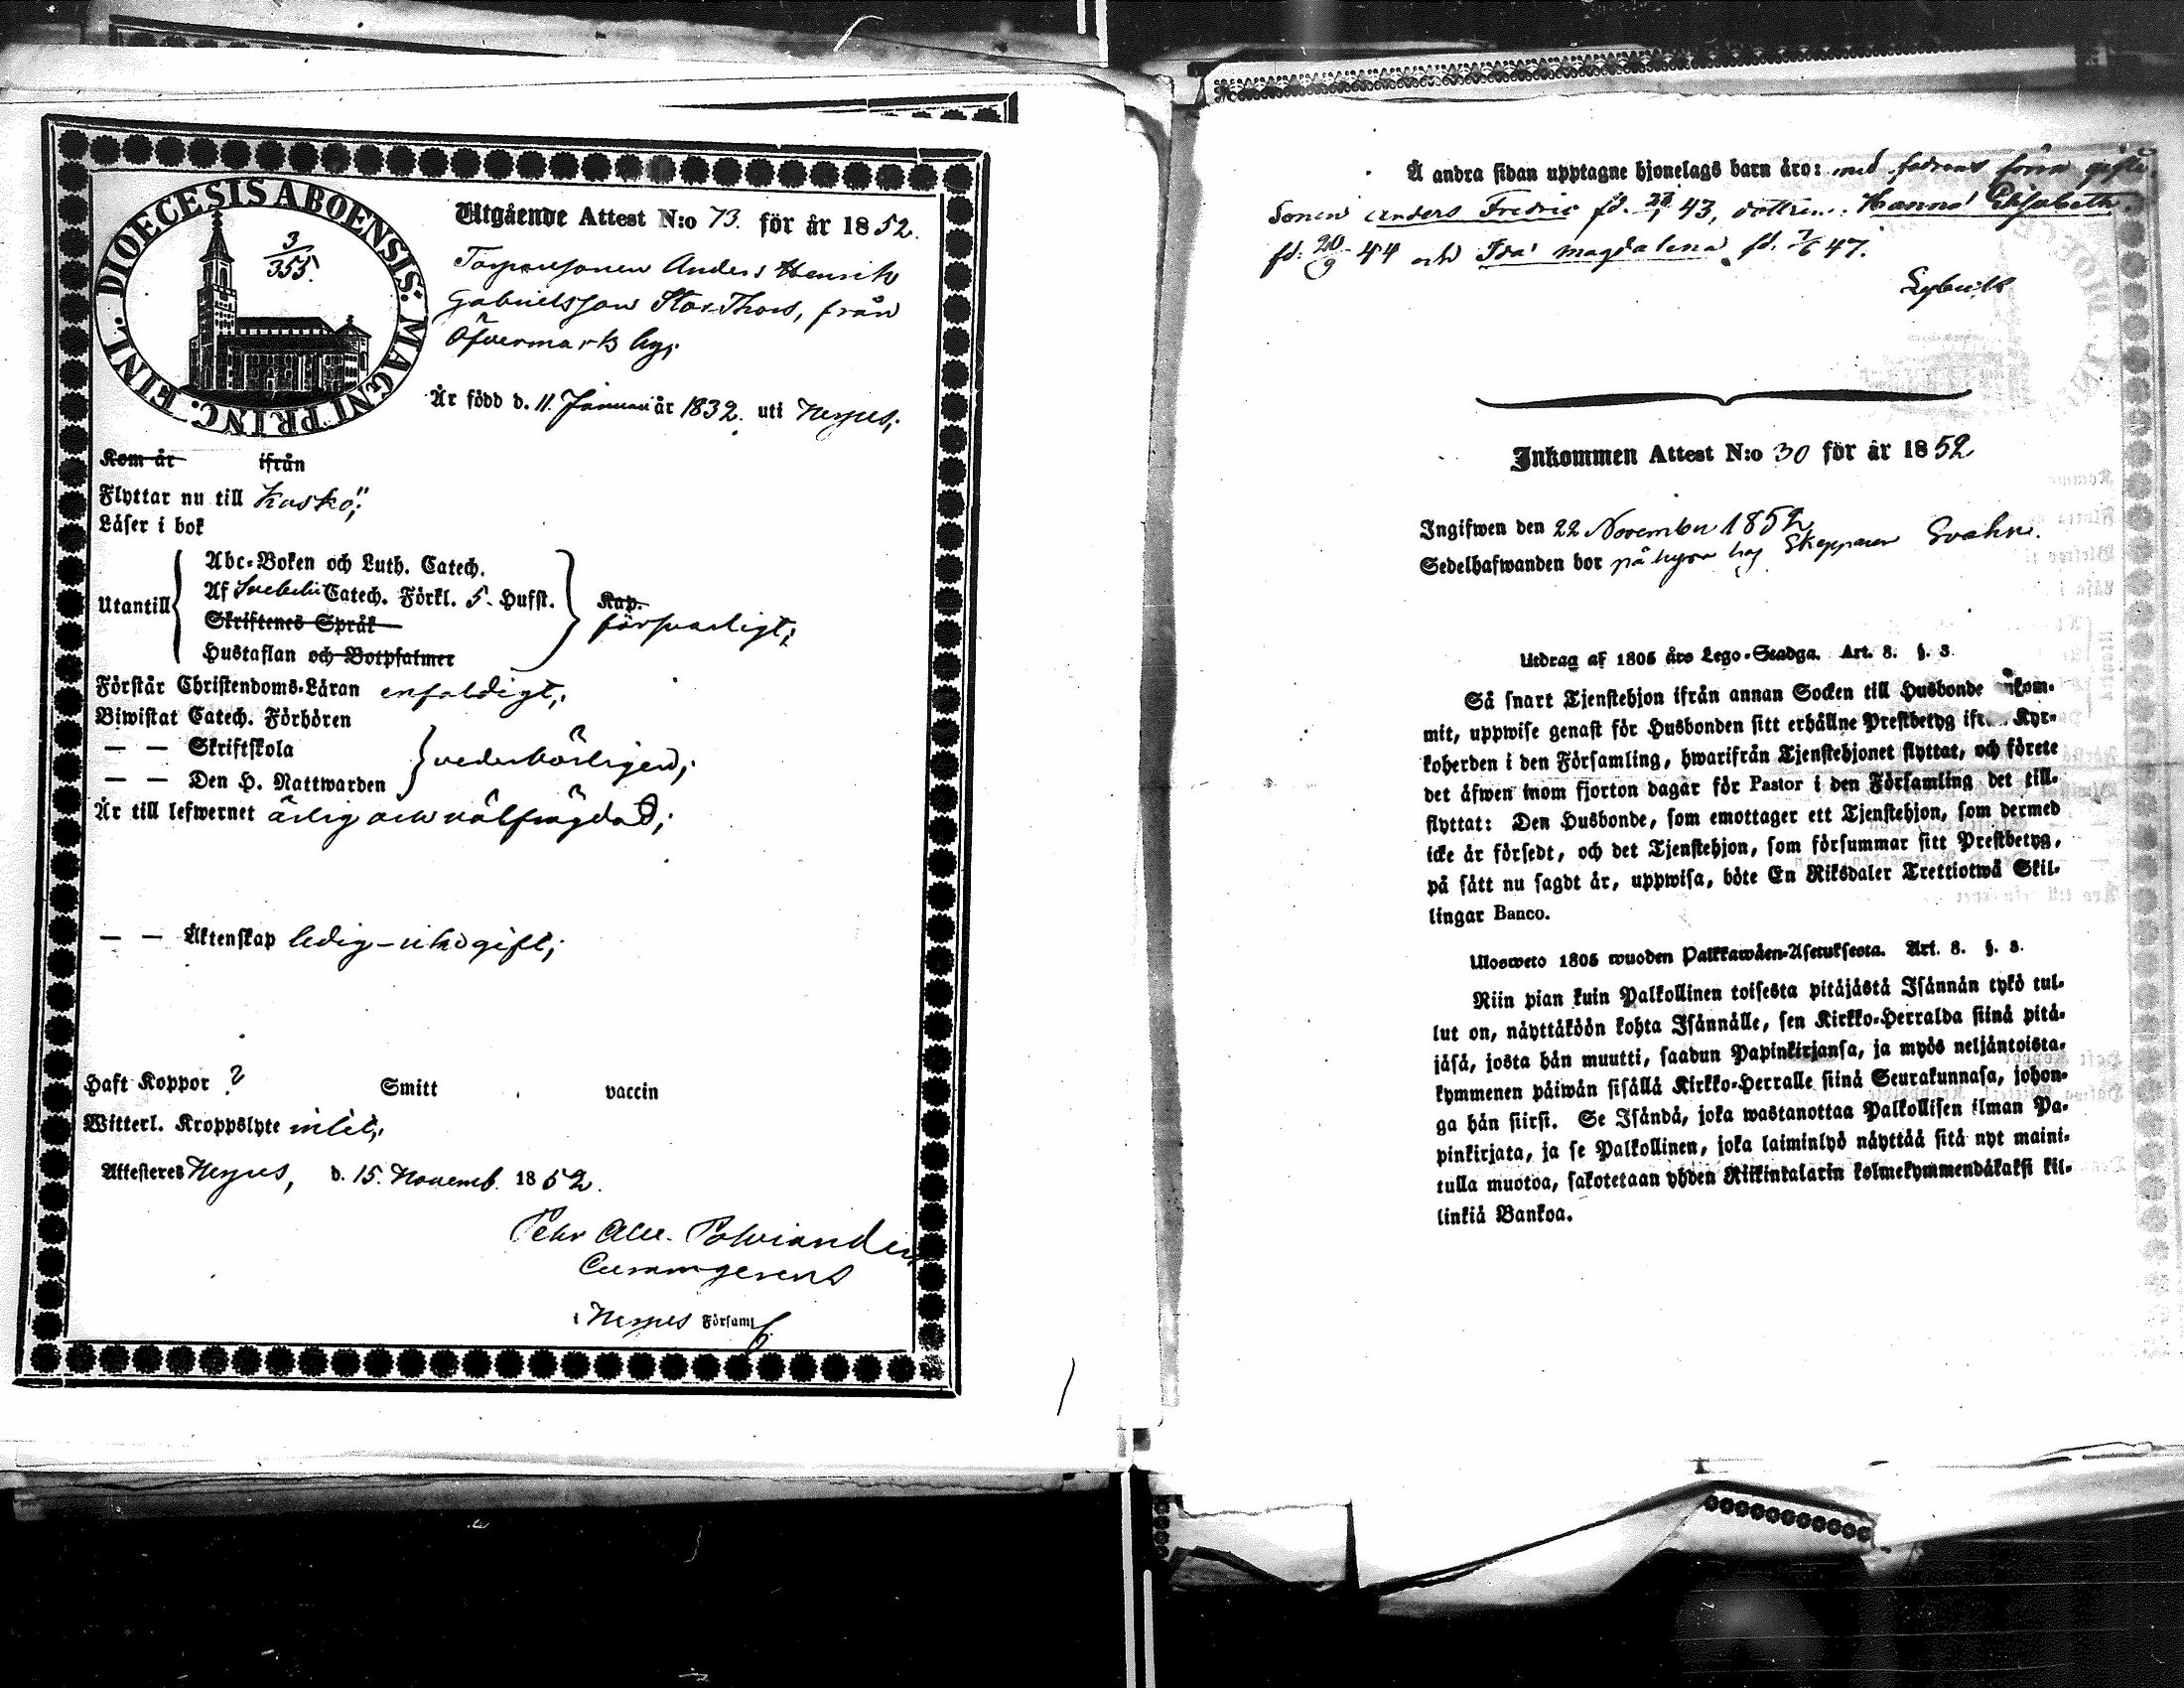 DIOECESIS ABOENSIS. MAGNI PRINC. FINL.
3
355.
Utgående Attest N:o 73. för år 1852.
Torparesonen Anders Henrik
Gabrielsson Stor-Thors, från
Öfvermark by;
Är född d. 11. Januari år 1832. uti Nerpes;
Kom år ifrån
Flyttar nu till Kaskö;
Läser i bok
Utantill
Abc-Boken och Luth. Catech.
Af Svebelii Catech. Förkl. 5. Hufst.
Skriftenes Språk
Hustaflan och Botpsalmer
Kap.
försvarligt;
Förstår Christendoms-Läran enfaldigt;
Biwistat Catech. Förhören
— — Skriftskola
— — Den H. Nattwarden
vederbörligen;
Är till lefwernet ärlig och välfrägdad;
— — Äktenskap ledig – icke gift;
Haft Koppor ? Smitt vaccin
Witterl. Kroppslyte intet;
Attesteres Nerpes, d. 15. Novemb. 1852.
Pehr Alex. Polviander
Curam gerens
i Nerpes Församl.
Å andra sidan upptagne hjonelags barn äro: med fadrens förra gifte.
Sonen Anders Fredric fd. 43, dottren Hanna Elisabeth.
fd. 20/9 44 och Ida Magdalena fd. 7/6 47.
Inkommen Attest N:o 30 för år 1852
Ingifwen den 22 November 1852
Sedelhafwanden bor på hyra hos Skepparen Svahn.
Utdrag af 1805 års Lego-Stadga. Art. 8. §. 3.
Så snart Tjenstehjon ifrån annan Socken till Husbonde inkom-
mit, uppwise genast för Husbonden sitt erhållne Prestbetyg ifr.. Kyr-
koherden i den Församling, hwarifrån Tjenstehjonet flyttat, och förete
det äfwen inom fjorton dagar för Pastor i den Församling det till-
flyttat: Den Husbonde, som emottager ett Tjenstehjon, som dermed
icke är försedt, och det Tjenstehjon, som försummar sitt Prestbetyg,
på sätt nu sagdt är, uppwisa, böte En Riksdaler Trettiotwå Skil-
lingar Banco.
Ulosweto 1805 wuoden Palkkawäen-Asetuksesta. Art. 8. §. 3.
Niin pian kuin Palkollinen toisesta pitäjästä Isännän tykö tul-
lut on, näyttäköön kohta Isännälle, sen Kirkko-Herralda siinä pitä-
jäsä, josta hän muutti, saadun Papinkirjansa, ja myös neljäntoista-
kymmenen päiwän sisällä Kirkko-Herralle siinä Seurakunnasa, johon-
ga hän siirsi. Se Isändä, joka wastanottaa Palkollisen ilman Pa-
pinkirjata, ja se Palkollinen, joka laiminlyö näyttää sitä nyt maini-
tulla muotoa, sakotetaan yhden Riikintalarin kolmekymmendäkaksi kil-
linkiä Bankoa.